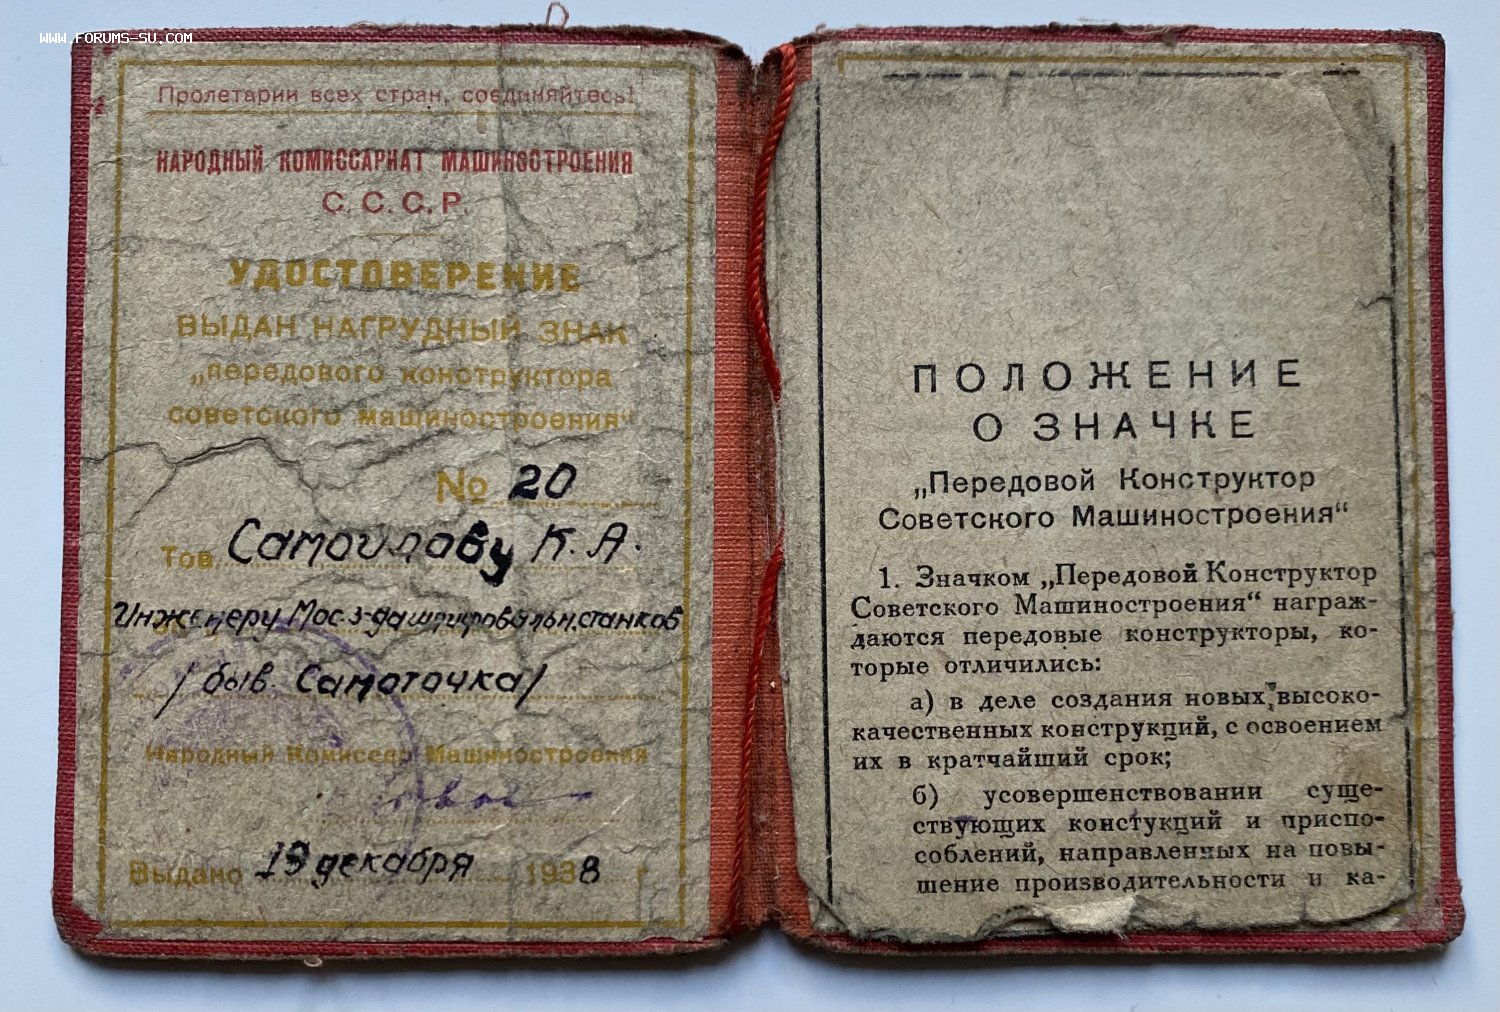 WWW.FORUMS-SU.COM
Пролетарии всех стран, соединяйтесь!
НАРОДНЫЙ КОМИССАРИАТ МАШИНОСТРОЕНИЯ
С. С. С. Р.
УДОСТОВЕРЕНИЕ
ВЫДАН НАГРУДНЫЙ ЗНАК
„передового конструктора
советского машиностроения“
№ 20
Тов. Самойлову К. А.
Инженеру Мос. з-да шлифовальн. станков
/быв. Самоточка/
Народный Комиссар Машиностроения
Выдано 19 декабря 1938 г.
ПОЛОЖЕНИЕ
О ЗНАЧКЕ
„Передовой Конструктор
Советского Машиностроения“
1. Значком „Передовой Конструктор
Советского Машиностроения“ награж-
даются передовые конструкторы, ко-
торые отличились:
а) в деле создания новых, высоко-
качественных конструкций, с освоением
их в кратчайший срок;
б) усовершенствовании суще-
ствующих констукций и приспо-
соблений, направленных на повы-
шение производительности и ка-